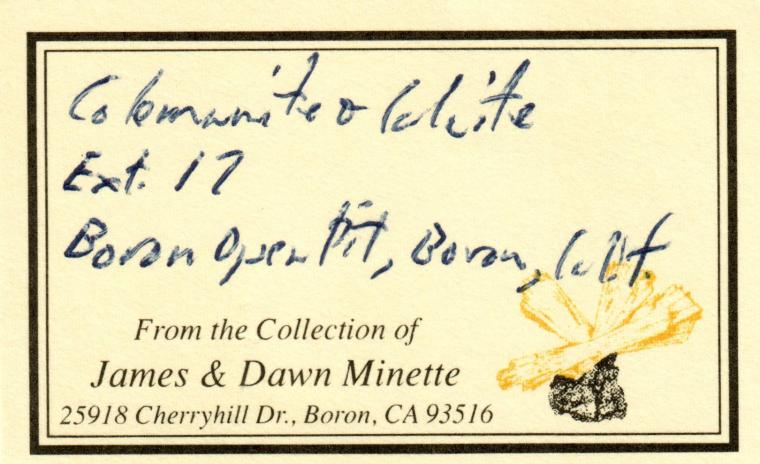 Colemanite & Calcite
Ext. 17
Boron Open Pit, Boron, Calif.
From the Collection of
James & Dawn Minette
25918 Cherryhill Dr., Boron, CA 93516